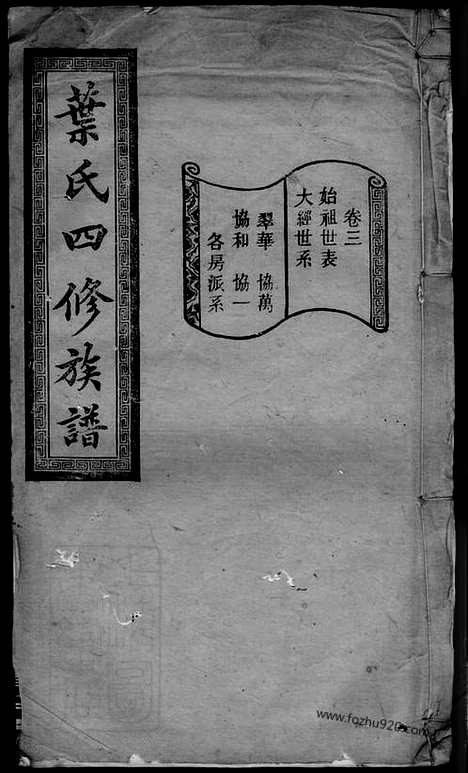 葉氏四修族譜
卷三
始祖世表
大經世系
翠華 協萬
協和 協一
各房派系
www.fozhu920.com